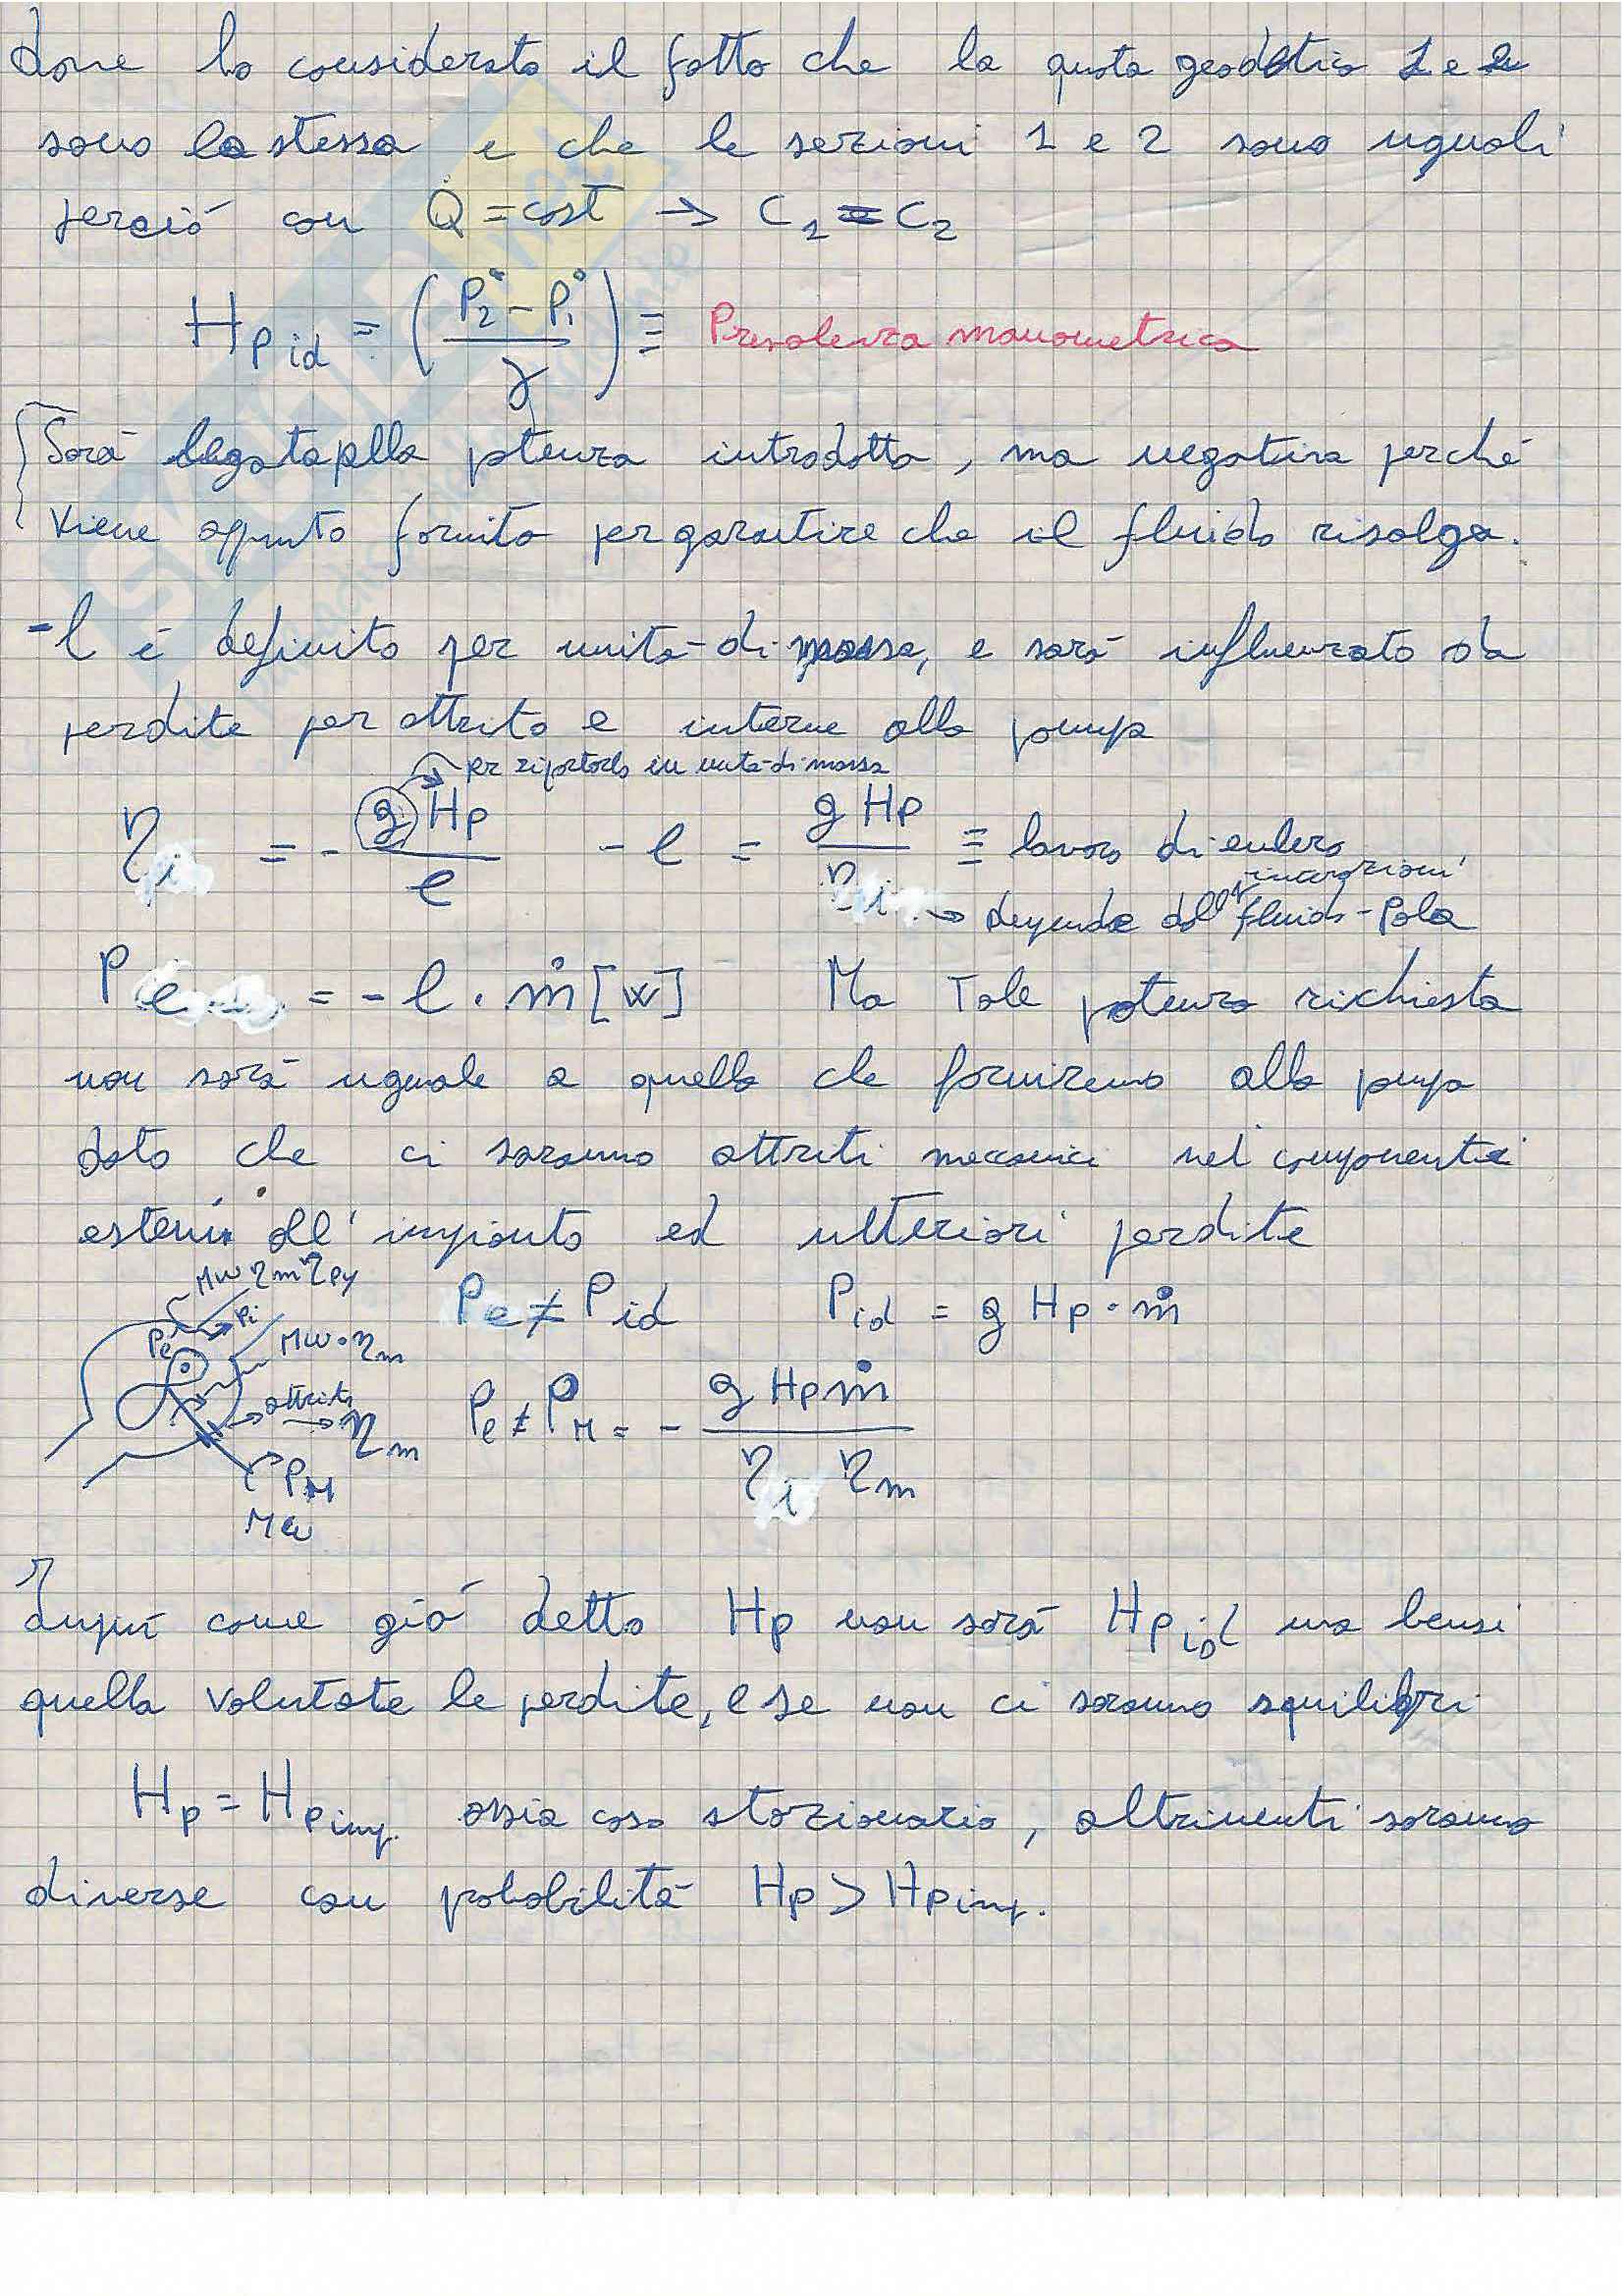 dove ho considerato il fatto che la quota geodetica 1 e 2
sono la stessa e che le sezioni 1 e 2 sono uguali
perció con Q̇ = cost → C₁ = C₂
Hp id = (P₂° - P₁° / γ) ≡ Prevalenza manometrica
Sará legata alla potenza introdotta, ma negativa perché
viene appunto fornita per garantire che il fluido risalga.
- l é definito per unitá di massa, e sará influenzato da
perdite per attrito e interne alla pompa
→ per riportarlo in unitá di massa
ηi = - g Hp / l   - l = g Hp / ηi ≡ lavoro di eulero
→ dipende dall'interazioni fluido-Pala
Pe = - l · ṁ [W]   Ma Tale potenza richiesta
non sará uguale a quella che forniremo alla pompa
dato che ci saranno attriti meccanici nei componenti
esterni all'impianto ed ulteriori perdite
Mω ηm ηpy
Pe → Pi
Mω·ηm
→ attriti
→ ηm
PM
Mω
Pe ≠ Pid   Pid = g Hp · ṁ
Pe ≠ PM = - g Hp ṁ / ηi ηm
come giá detto Hp non sará Hp id ma bensi
quella valutate le perdite, e se non ci saranno squilibri
Hp = Hp imp. ossia caso stazionario, altrimenti saranno
diverse con probabilitá Hp > Hp imp.